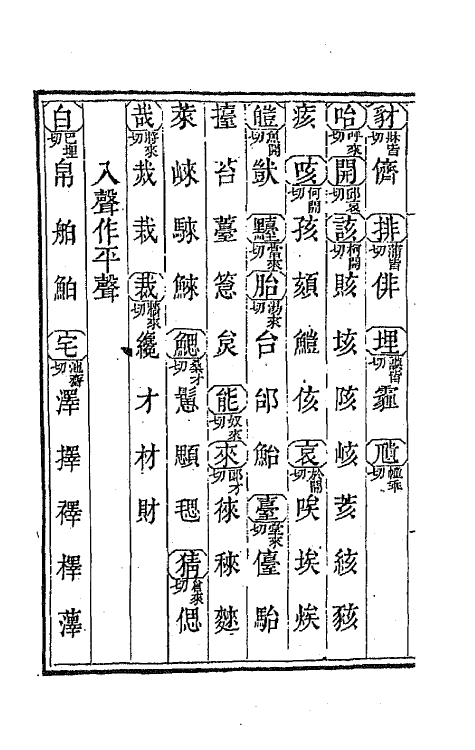 豺牀皆切 儕 排蒲皆切 俳 埋謨皆切 霾
咍呼來切 開邱哀切 該柯開切 賅 垓 陔 峐 荄 絯 豥
痎 咳何開切 孩 頦 侅 哀於開切 唉 埃
皚魚開切 獃 當來切 胎湯來切 台 邰 鮐 臺堂來切 儓 駘
擡 苔 薹 炱 能奴來切 來郎才切 徠 麳
萊 崍 騋 鯠 鰓桑才切 顋 毸 猜倉來切 偲
哉將來切 烖 栽 裁牆來切 纔 才 材 財
入聲作平聲
白巴埋切 帛 舶 鮊 宅池齋切 澤 擇 襗 檡